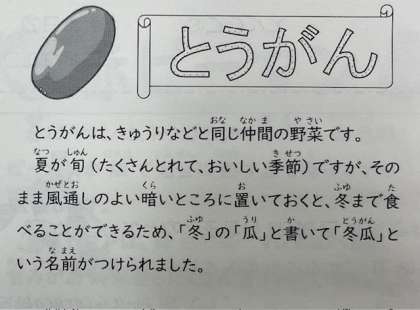 とうがん
とうがんは、きゅうりなどと同じ仲間の野菜です。
夏が旬（たくさんとれて、おいしい季節）ですが、その
まま風通しのよい暗いところに置いておくと、冬まで食
べることができるため、「冬」の「瓜」と書いて「冬瓜」と
いう名前がつけられました。